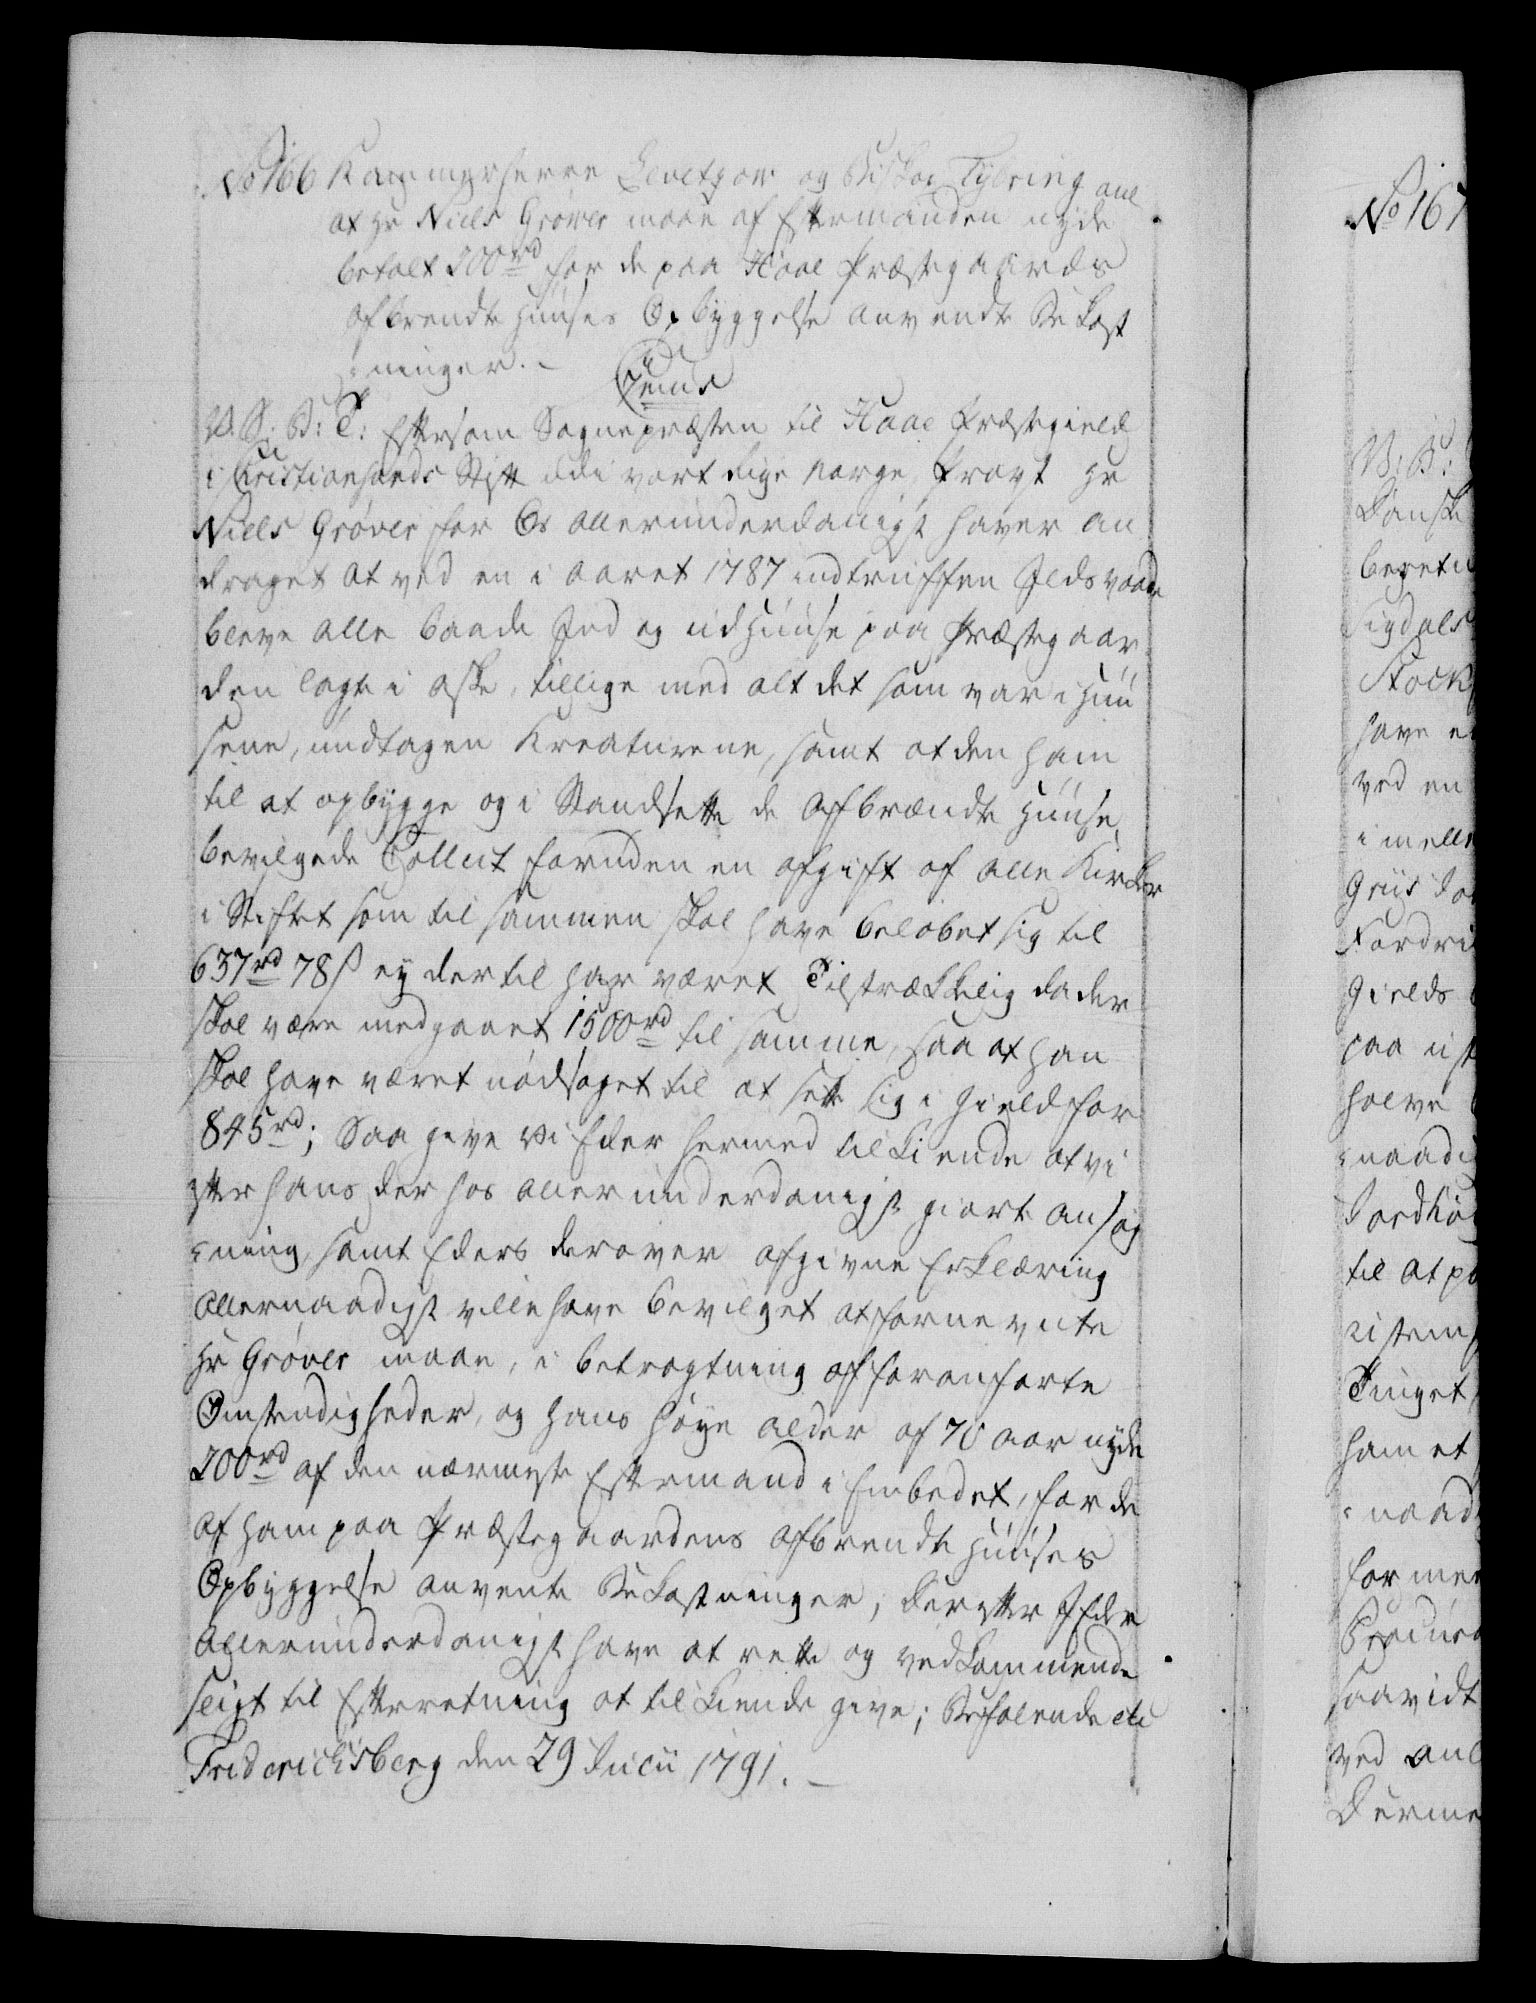 No 166 Kammerherre Levetzow og Biskop Tybring anl
at Hr Niels Grøver maae af Eftermanden nyde
betalt 200rd for de paa Haae Præstegaards
afbrendte Huuses Opbyggelse anvendte Bekost
:ninger. –
V. S. B: T: Eftersom Sognepræsten til Haae Præstegield
i Christiansands Stift udi vort Rige Norge, Provst Hr
Niels Grøver for Os allerunderdanigst haver an
draget at ved en i Aaret 1787 indtruffen Ildsvaade
bleve alle baade Ind og udhuuse paa Præstegaar
den lagte i Aske, tillige med alt det som var i Huu
sene, undtagen Kreaturene, samt at den ham
til at opbygge og i Standsette de Afbrændte Huuse
bevilgede Collect foruden en afgift af alle Kirker
i Stiftet som til sammen skal have beløbet sig til
637rd 78ß ey dertil har været Tilstrækkelig da der
skal være medgaaet 1500rd til samme, saa at han
skal have været nødsaget til at sette sig i Gield for
845rd; Saa give vi Eder hermed til kiende at vi
efter hans derhos allerunderdanigst giorte Ansøg
:ning, samt Eders derover afgivne Erklæring
Allernaadigst ville have bevilget at fornevnte
Hr Grøver maae, i betragtning af foranførte
Omstendigheder, og hans høye alder af 70 Aar nyde
200rd af den nærmeste Eftermand i Embedet, for de
af ham paa Præstegaardens afbrendte Huuses
Opbyggelse anvente Bekostninger; Derefter I Eder
Allerunderdanigst have at rette og vedkommende
sligt til Efterretning at tilkiende give; Befalende etc
Friderichsberg den 29 Julii 1791. –
No 167